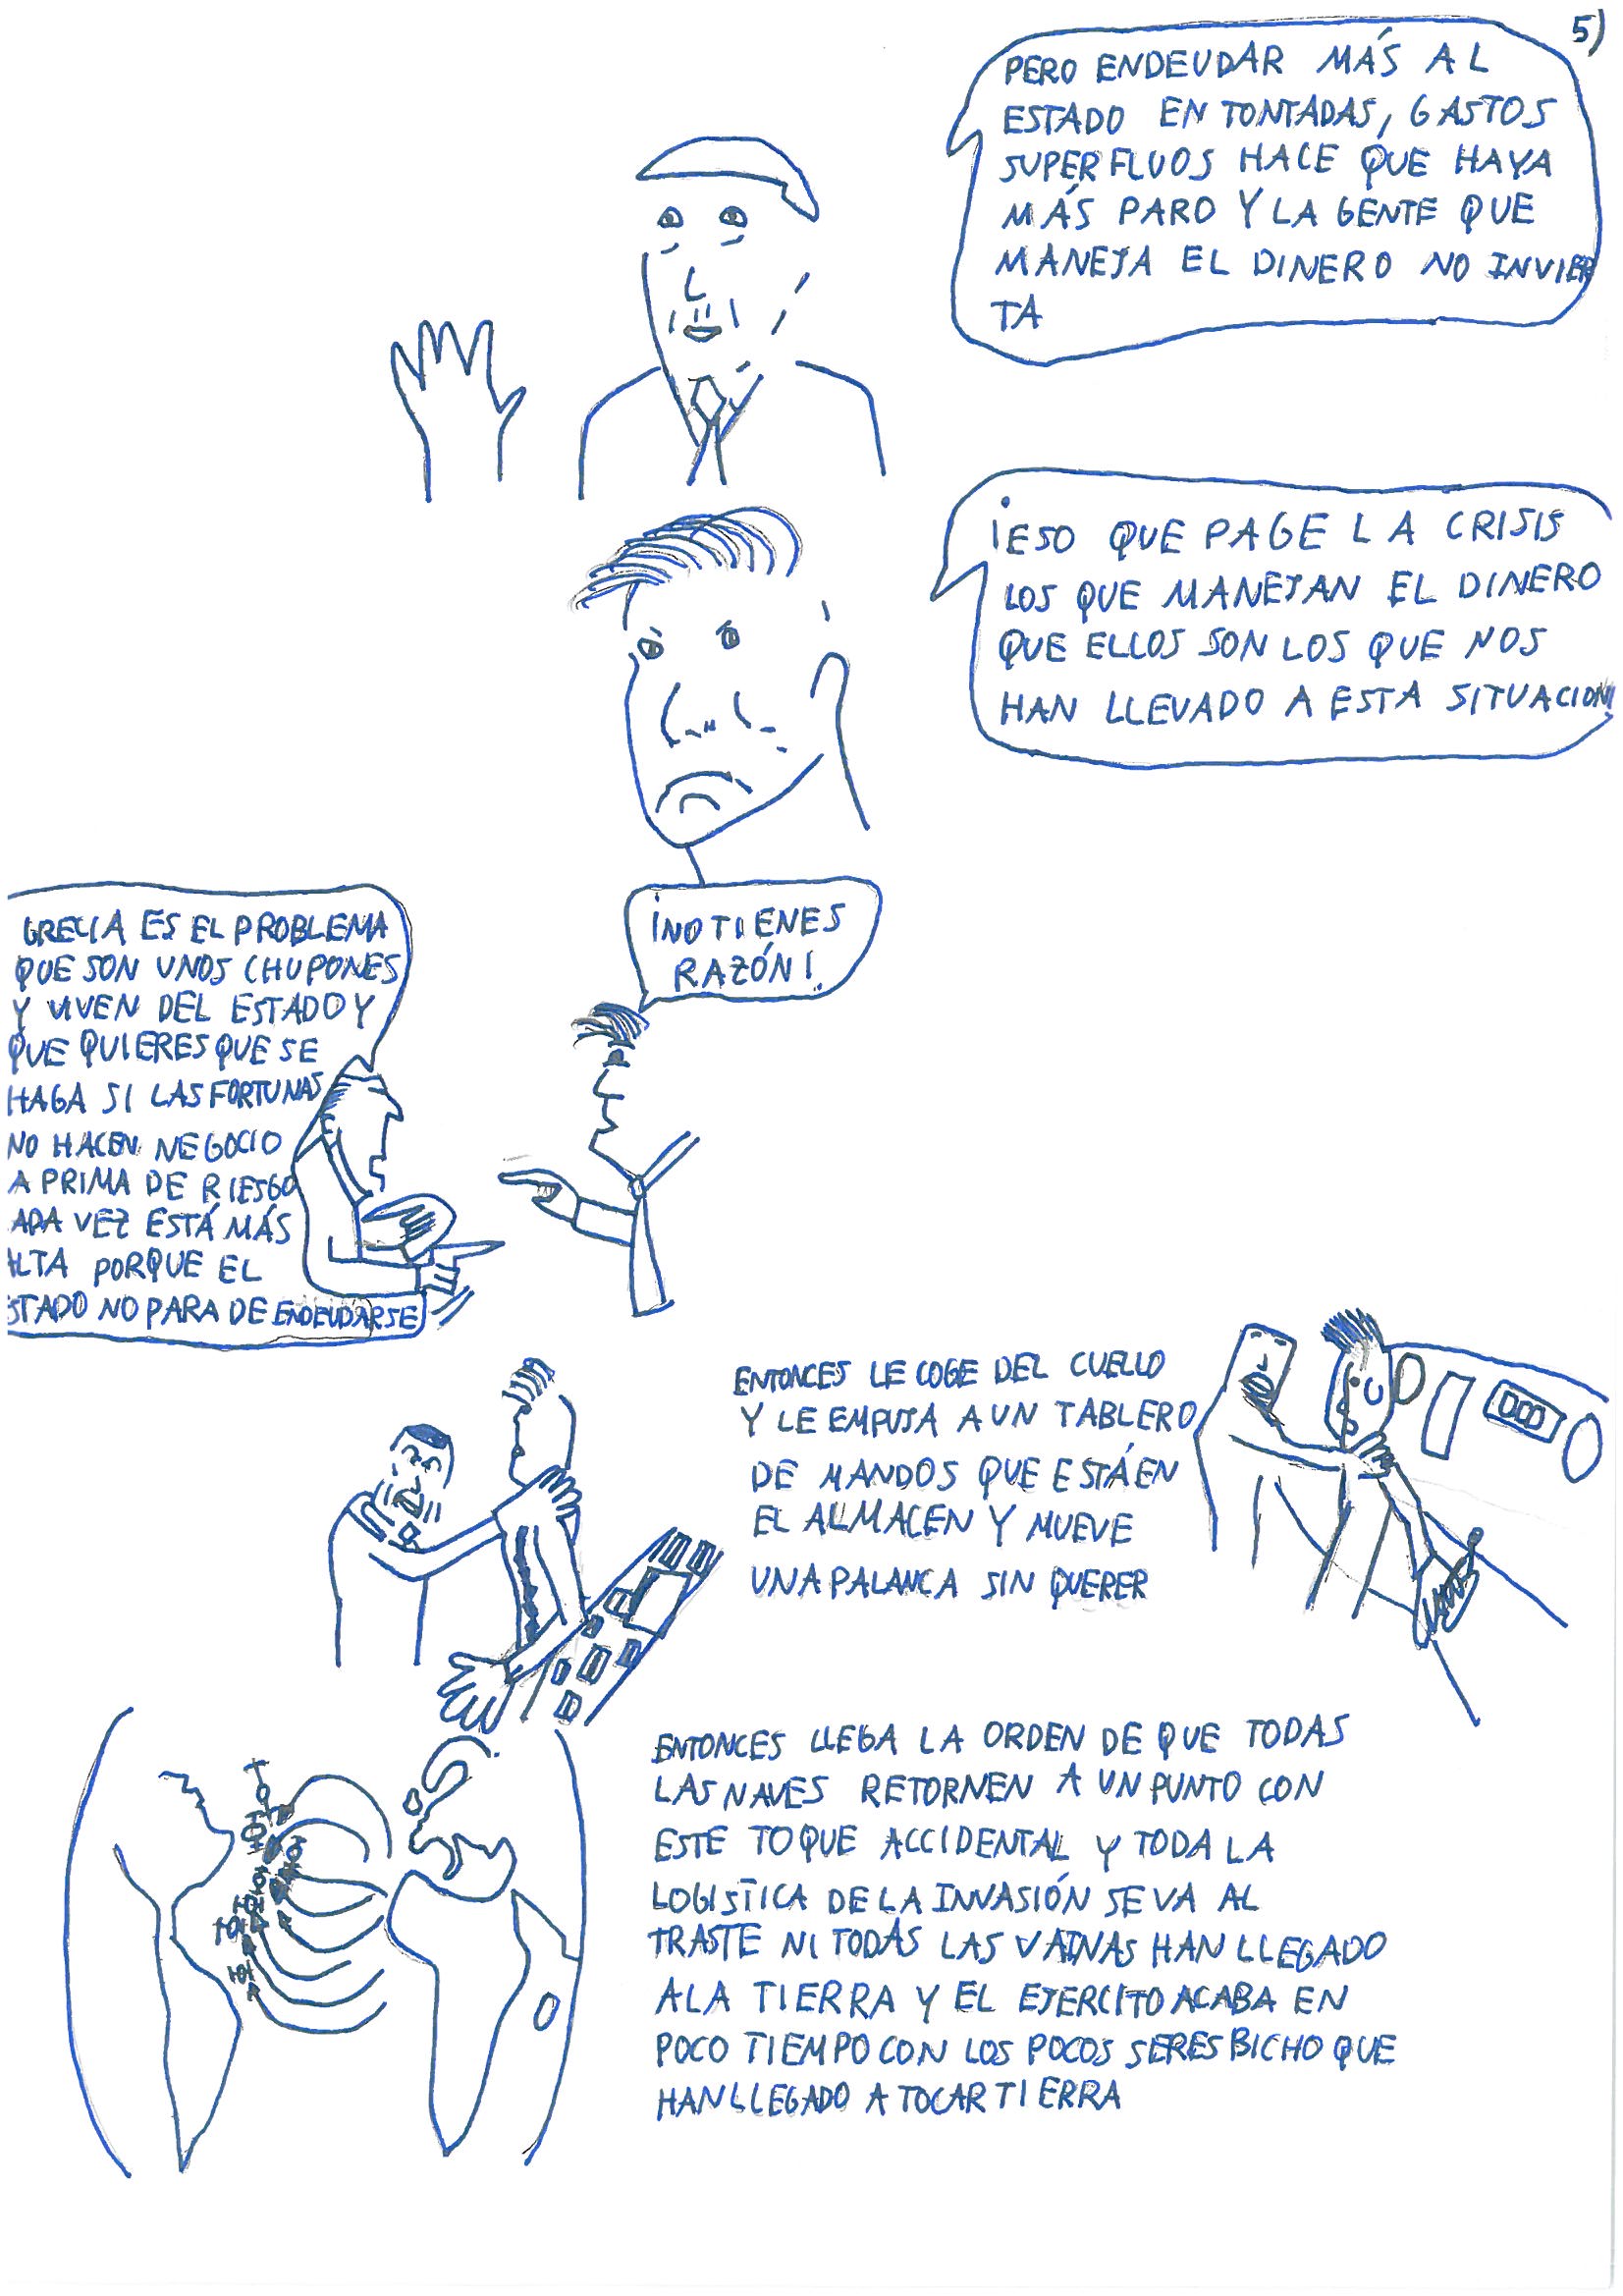 5)
PERO ENDEUDAR MÁS AL
ESTADO EN TONTADAS, GASTOS
SUPERFLUOS HACE QUE HAYA
MÁS PARO Y LA GENTE QUE
MANEJA EL DINERO NO INVIER
TA
¡ESO QUE PAGE LA CRISIS
LOS QUE MANEJAN EL DINERO
QUE ELLOS SON LOS QUE NOS
HAN LLEVADO A ESTA SITUACION!
GRECIA ES EL PROBLEMA
QUE SON UNOS CHUPONES
Y VIVEN DEL ESTADO Y
QUE QUIERES QUE SE
HAGA SI LAS FORTUNAS
NO HACEN NEGOCIO
A PRIMA DE RIESGO
ADA VEZ ESTÁ MÁS
LTA PORQUE EL
STADO NO PARA DE ENDEUDARSE
¡NO TIENES
RAZÓN!
ENTONCES LE COGE DEL CUELLO
Y LE EMPUJA A UN TABLERO
DE MANDOS QUE ESTÁ EN
EL ALMACEN Y MUEVE
UNA PALANCA SIN QUERER
ENTONCES LLEGA LA ORDEN DE QUE TODAS
LAS NAVES RETORNEN A UN PUNTO CON
ESTE TOQUE ACCIDENTAL Y TODA LA
LOGISTICA DE LA INVASIÓN SE VA AL
TRASTE NI TODAS LAS VAINAS HAN LLEGADO
A LA TIERRA Y EL EJERCITO ACABA EN
POCO TIEMPO CON LOS POCOS SERES BICHO QUE
HAN LLEGADO A TOCAR TIERRA